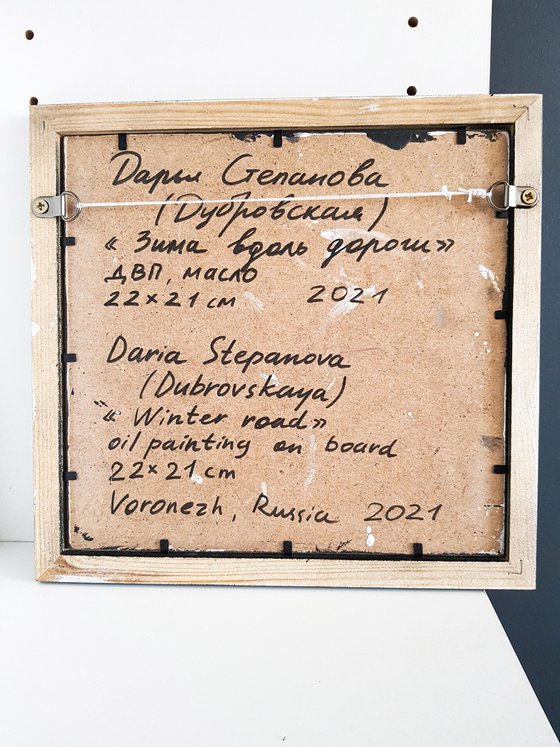 Дарья Степанова
(Дубровская)
« Зима вдоль дороги»
ДВП, масло
22×21 см 2021
Daria Stepanova
(Dubrovskaya)
« Winter road»
oil painting on board
22×21 cm
Voronezh, Russia 2021